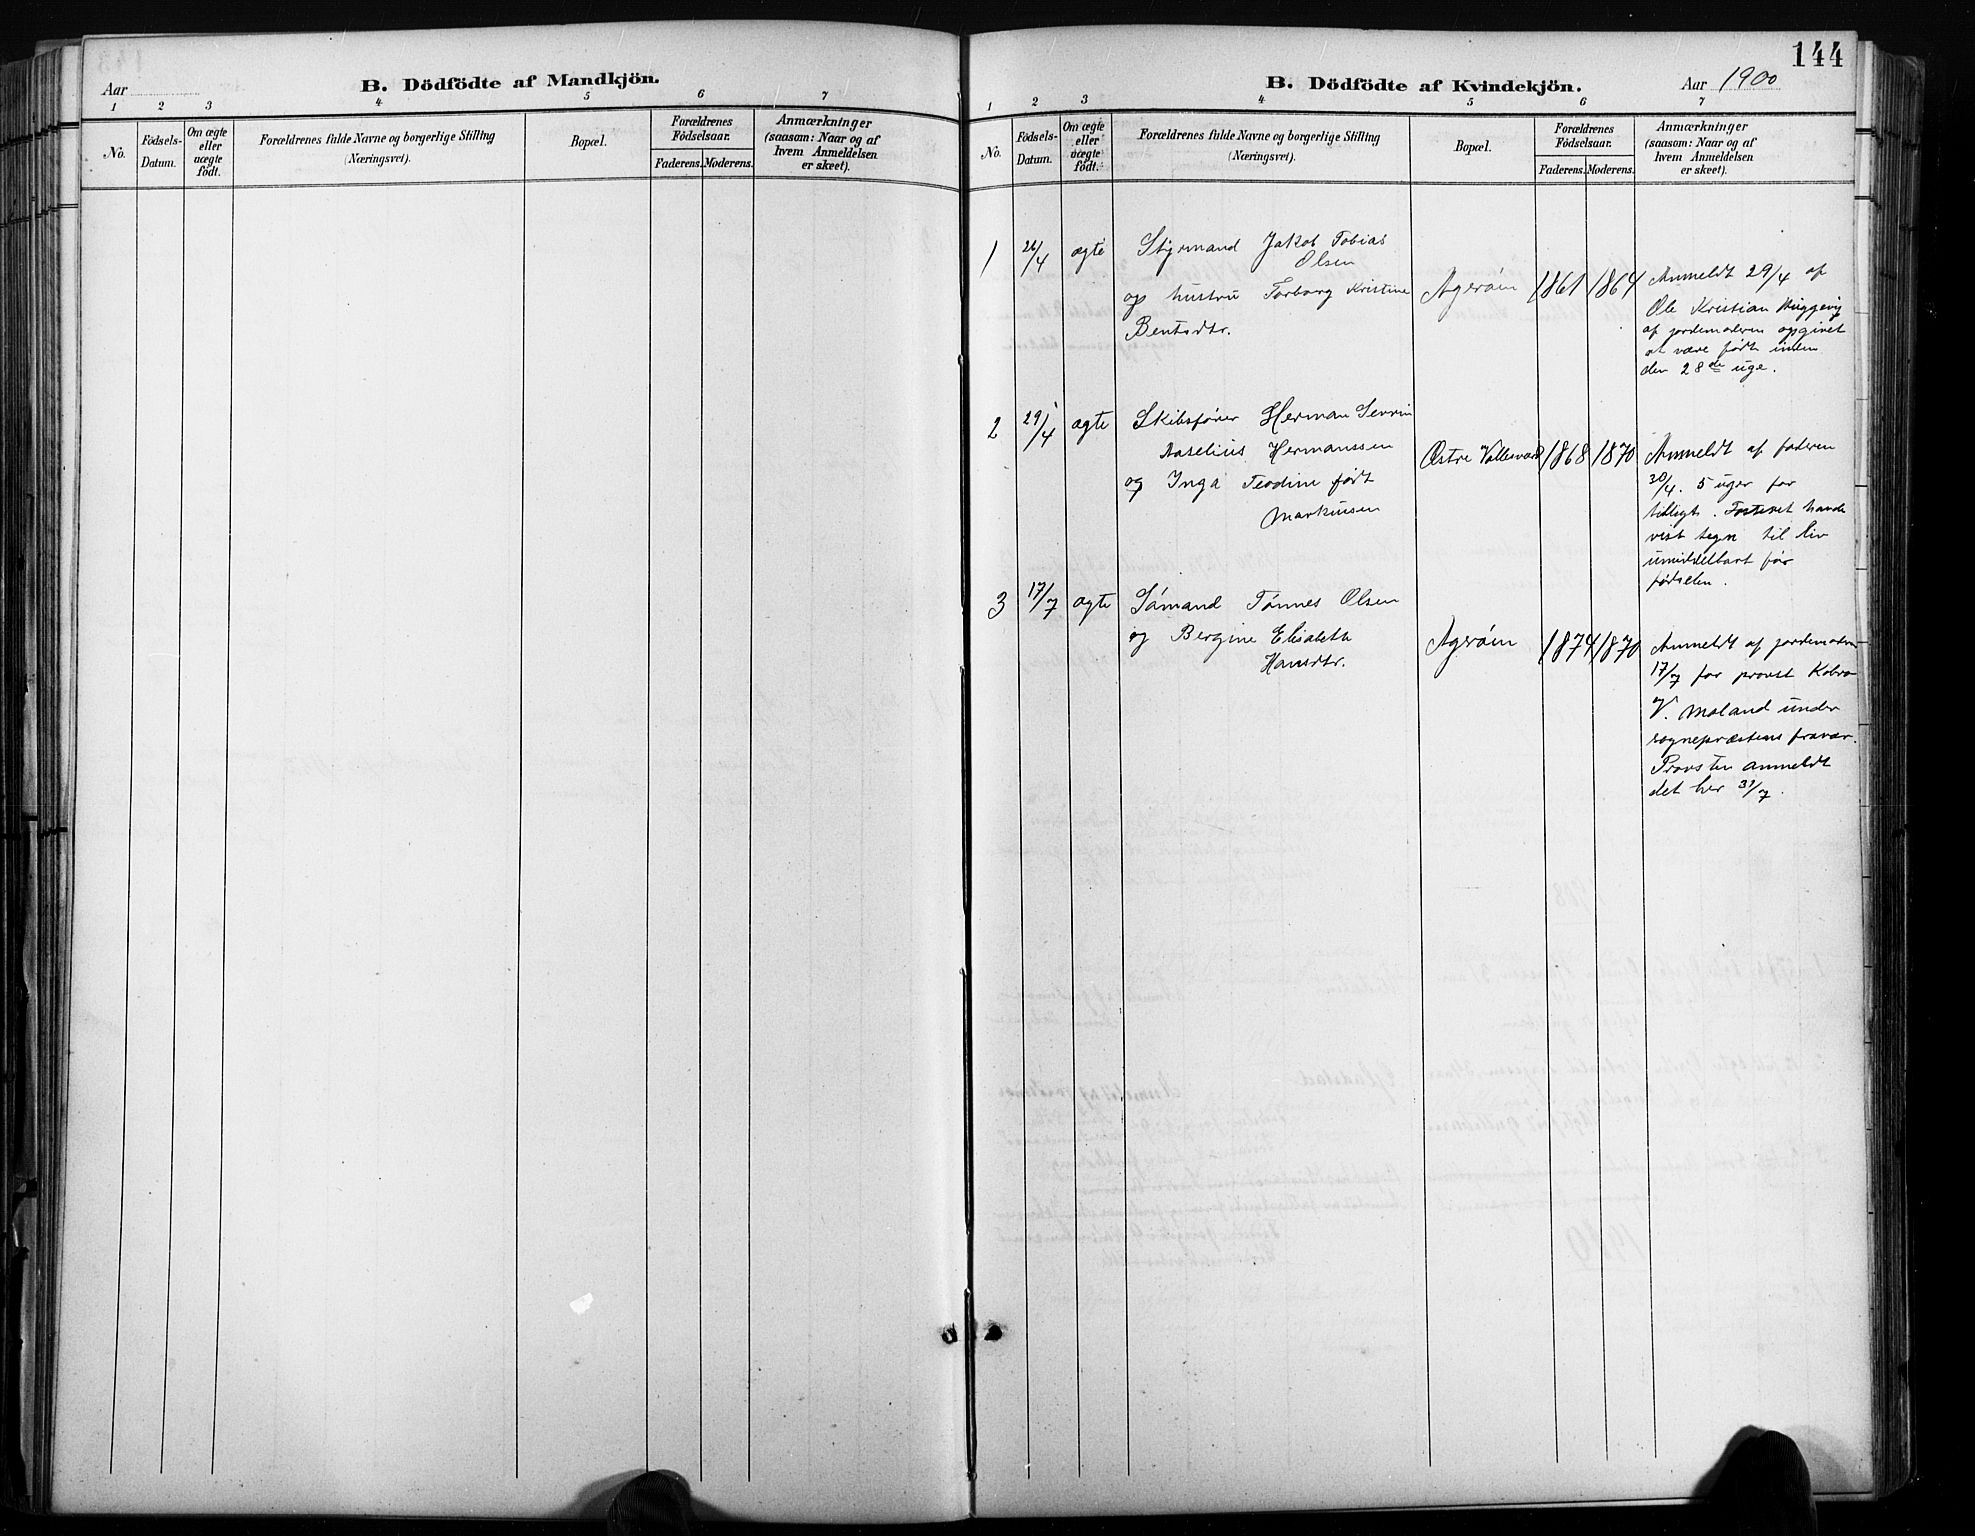 B. Dödfödte af Mandkjön.
Aar
1 2 3 4 5 6 7
No.
Födsels-
Datum.
Om ægte
eller
uægte
født.
Forældrenes fulde Navne og borgerlige Stilling
(Næringsvei).
Bopæl.
Forældrenes
Födselsaar.
Faderens. Moderens.
Anmærkninger
(saasom: Naar og af
hvem Anmeldelsen
er skeet).
144
B. Dödfödte af Kvindekjön.
Aar 1900
1 2 3 4 5 6 7
No.
Födsels-
Datum.
Om ægte
eller
uægte
født.
Forældrenes fulde Navne og borgerlige Stilling
(Næringsvei).
Bopæl.
Forældrenes
Födselsaar.
Faderens. Moderens.
Anmærkninger
(saasom: Naar og af
hvem Anmeldelsen
er skeet).
1
26/4
ægte
Styrmand Jakob Tobias
Olsen
og hustru Torborg Kristine
Bentsdtr.
Agerøin
1861
1864
Anmeldt 29/4 af
Ole Kristian
af jordemoderen opgivet
at være født inden
den 28de uge.
2
29/4
ægte
Skibsfører Herman Severin
Hermanssen
og Inga Teodine født
Markussen
Østre Vallesværd
1868
1870
Anmeldt af faderen
30/4. 5 uger for
tidligt. Fosteret havde
vist tegn til liv
umiddelbart før
fødselen.
3
17/7
ægte
Sömand Tønnes Olsen
og Bergine Elisabeth
Hansdtr.
Agerøin
1874
1870
Anmeldt af jordemoderen
17/7 for provst
V. Moland under
sognepræstens fravær.
Provsten anmeldt
det her 31/7.